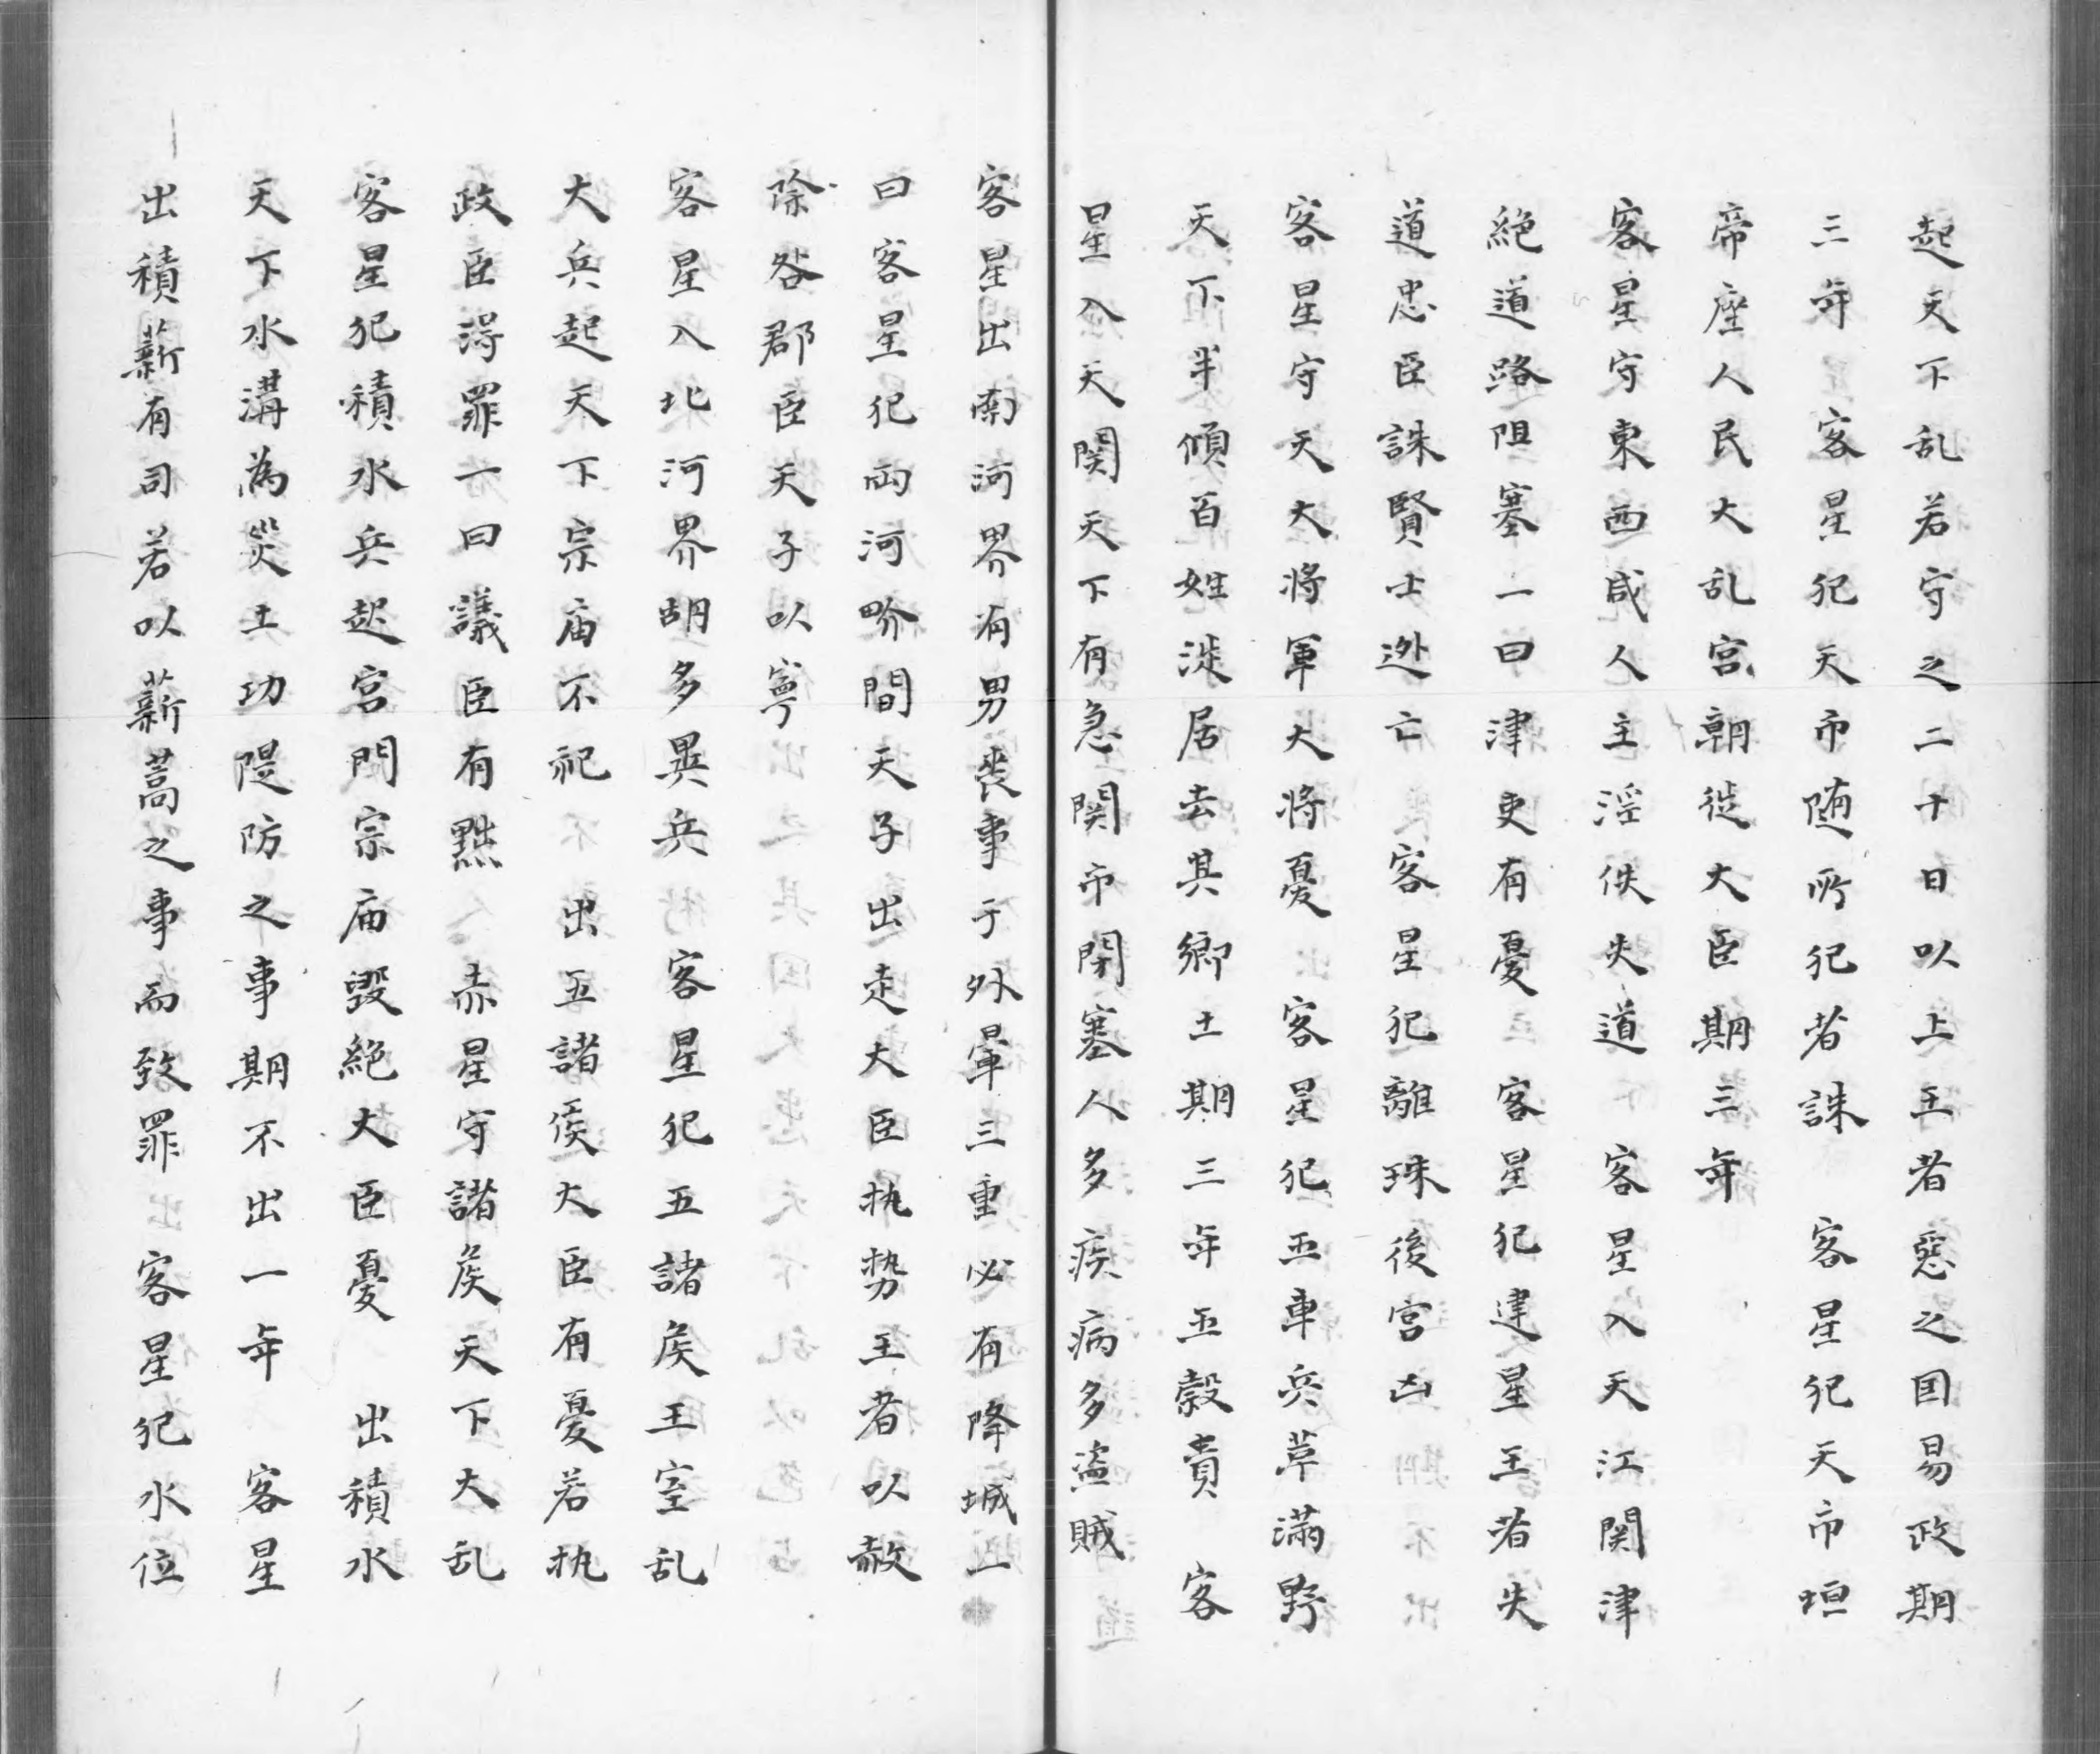 起天下乱若守之二十日以上王者惡之国易政期
三年　客星犯天市随所犯者誅　客星犯天市垣
帝座人民大乱宮朝徙大臣期三年
客星守東西咸人主淫佚失道　客星入天江関津
絶道路阻塞一曰津吏有憂　客星犯建星王者失
道忠臣誅賢士逃亡　客星犯離珠後宮凶
客星守天大将軍大将憂　客星犯五車兵草滿野
天下半傾百姓涉居去其鄉土期三年五穀貴　客
星入天関天下有急関市閉塞人多疾病多盗賊
客星出南河界有男喪事于外暈三重必有降城一
曰客星犯両河畍間天子出走大臣执势王者以赦
除咎郡臣天子以寧
客星入北河界胡多異兵　客星犯五諸矦王室乱
大兵起天下宗庙不祀　出五諸侯大臣有憂若执
政臣淂罪一曰議臣有黜　赤星守諸矦天下大乱
客星犯積水兵起宮門宗庙毀絶大臣憂　出積水
天下水溝為災土功隄防之事期不出一年　客星
出積薪有司若以薪蒿之事而致罪　客星犯水位